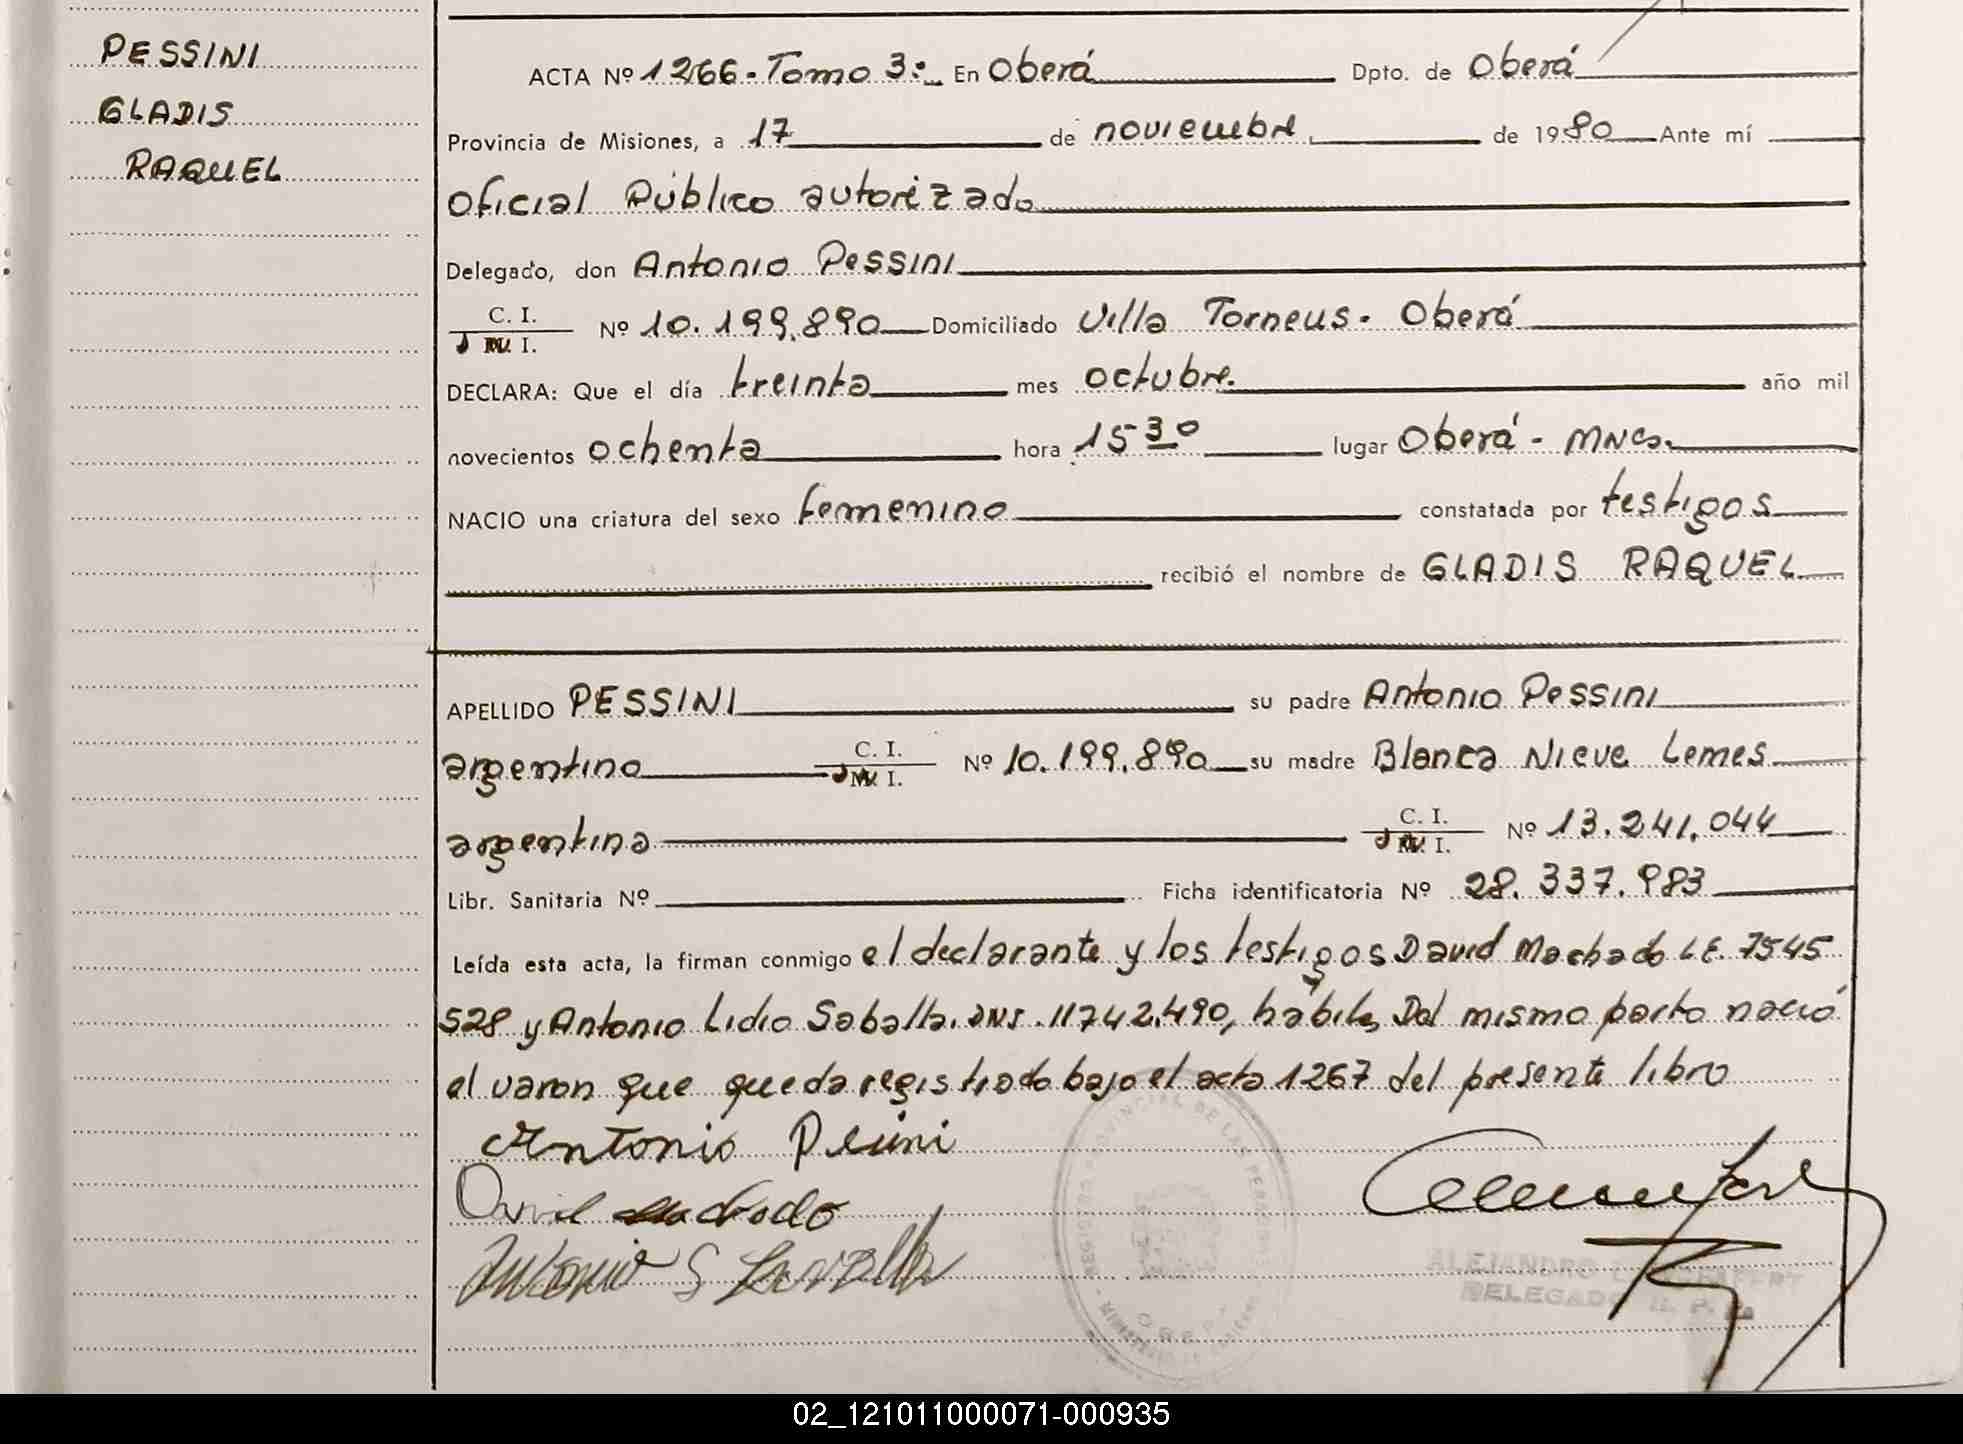 PESSINI
GLADIS
RAQUEL
ACTA Nº 1266 - Tomo 3: En Oberá Dpto. de Oberá
Provincia de Misiones, a 17 de noviembre de 1980 Ante mí
Oficial Público autorizado
Delegado, don Antonio Pessini
C. I.
Nº 10.199.890 Domiciliado Villa Torneus. Oberá
M. I.
DECLARA: Que el día treinta mes octubre. año mil
novecientos ochenta hora 15 30 lugar Oberá - MNES.
NACIO una criatura del sexo femenino constatada por testigos
recibió el nombre de GLADIS RAQUEL
APELLIDO PESSINI su padre Antonio Pessini
argentino C. I. M. I. Nº 10.199.890 su madre Blanca Nieve Lemes
argentina C. I. M. I. Nº 13.241.044
Libr. Sanitaria Nº Ficha identificatoria Nº 28.337.983
Leída esta acta, la firman conmigo el declarante y los testigos David Machado L.E. 7545
528 y Antonio Lidio Saballa. DNI. 11742.490, hábiles, Del mismo parto nació
el varon que queda registrado bajo el acta 1267 del presente libro
Antonio Pesini
David Machado
Antonio S
ALEJANDRO
DELEGADO R. P. P.
02_121011000071-000935